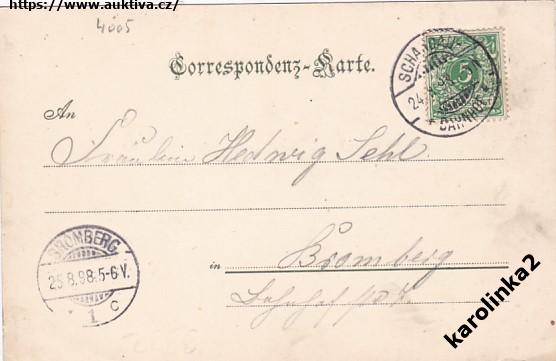 https://www.auktiva.cz/
4005
Correspondenz-Karte.
SCHANDAU
24.
BAHNHOF
5
An
Fräulein Hedwig Sehl.
BROMBERG
25.8.98.5-6V.
1 c
in Bromberg
karolinka2